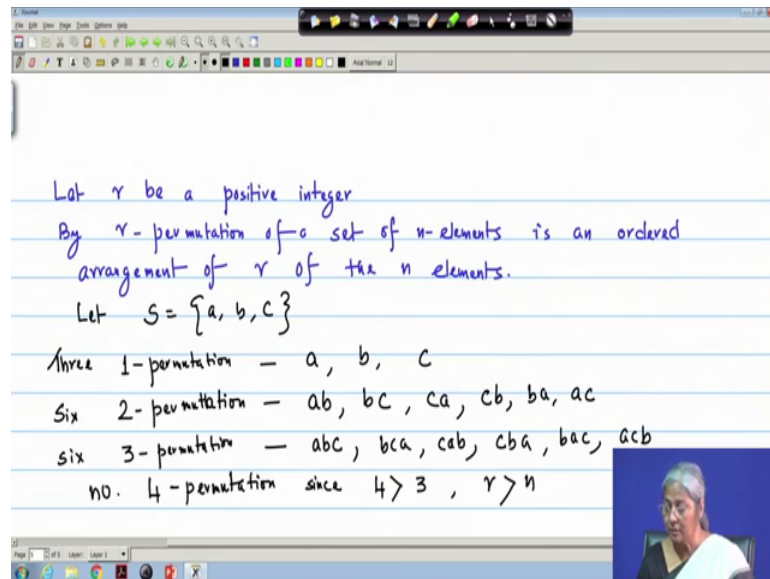 Journal
File Edit View Page Tools Options Help
Arial Normal 12
Let r be a positive integer
By r-permutation of a set of n-elements is an ordered
arrangement of r of the n elements.
Let S = {a, b, c}
Three 1-permutation — a, b, c
Six 2-permuttation — ab, bc, ca, cb, ba, ac
six 3-permutation — abc, bca, cab, cba, bac, acb
no. 4-permutation since 4 > 3, r > n
Page 5 of 5 Layer: Layer 1